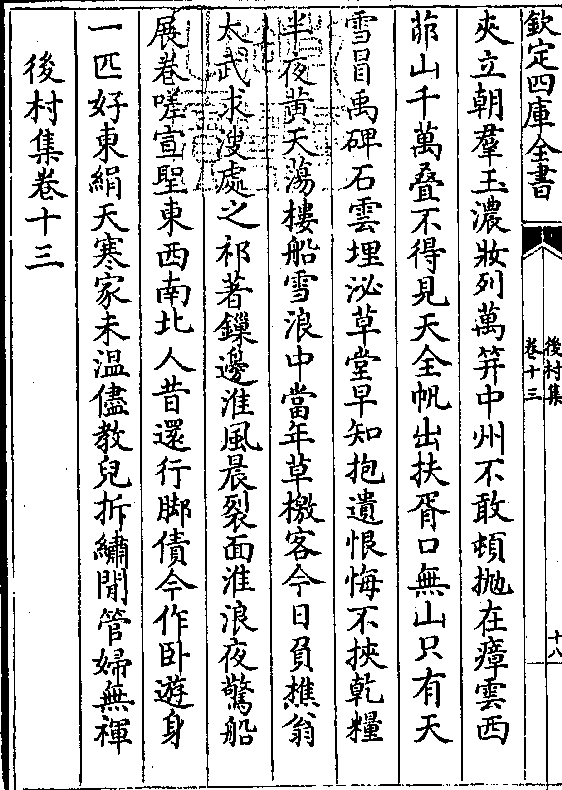 欽定四庫全書
後村集
卷十三
十八
夾立朝羣玉濃妝列萬笄中州不敢頓抛在瘴雲西
茆山千萬叠不得見天全帆出扶胥口無山只有天
雪冒禹碑石雲埋泌草堂早知抱遺恨悔不挾乾糧
半夜黃天蕩樓船雪浪中當年草檄客今日負樵翁
太武求溲處之祁著鏁邊淮風晨裂面淮浪夜驚船
展巻嗟宣聖東西南北人昔還行脚債今作卧遊身
一匹好東絹天寒家未溫儘教兒拆繡閒管婦無褌
後村集卷十三